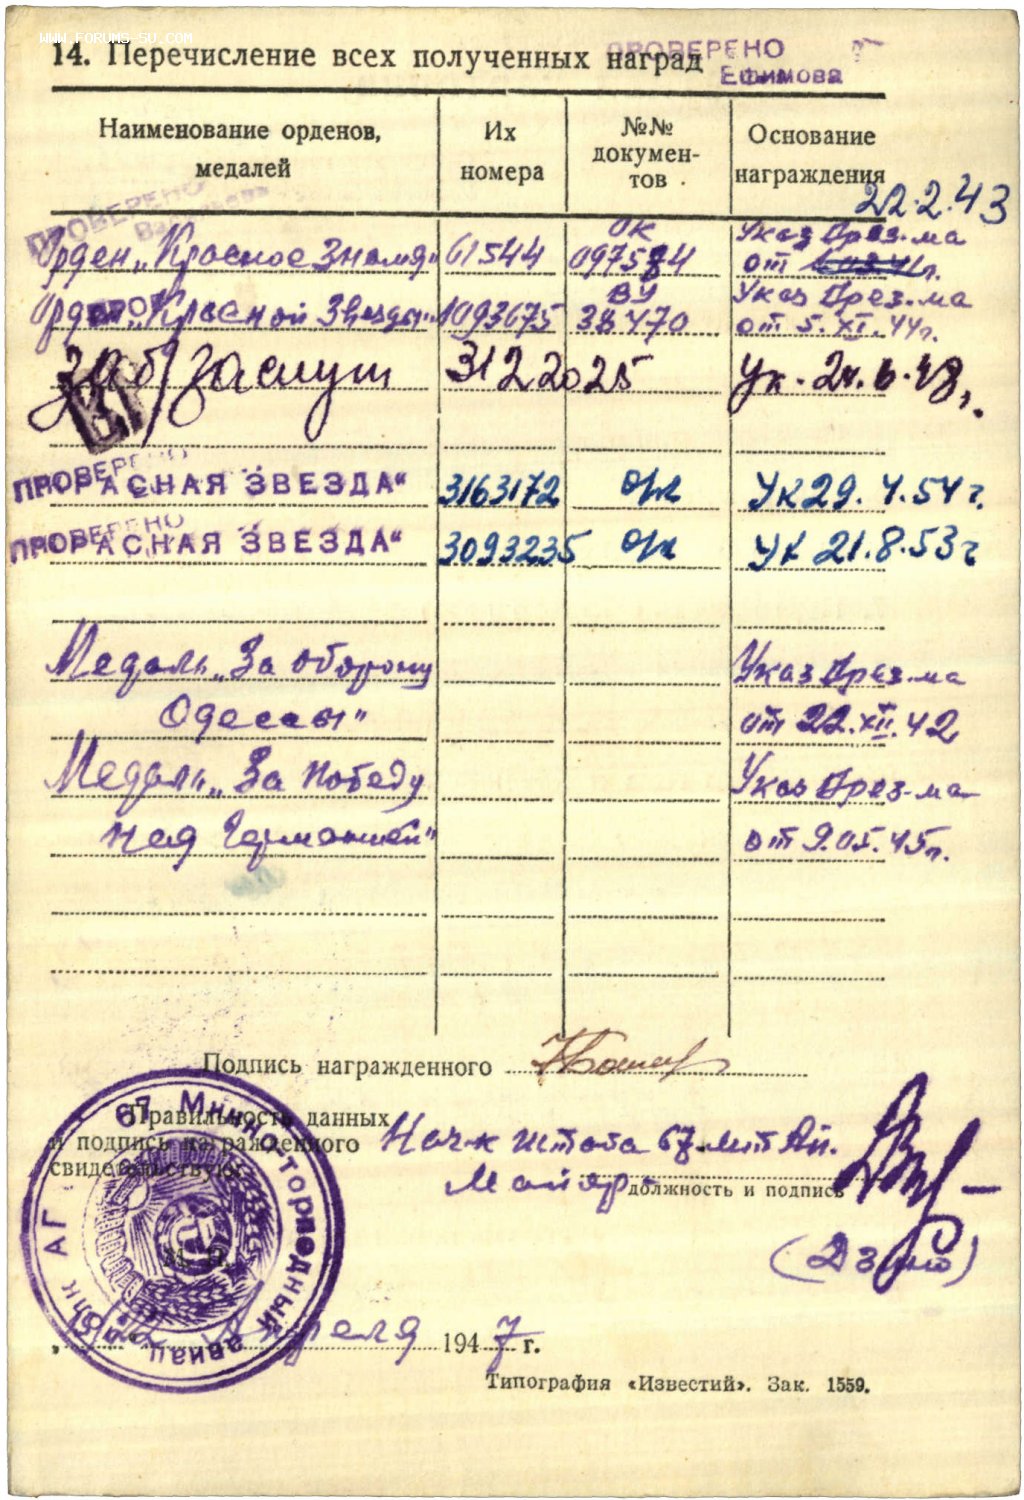 WWW.FORUMS-SU.COM
14. Перечисление всех полученных наград
ПРОВЕРЕНО
Ефимова
Наименование орденов, медалей
Их номера
№№ докумен-тов
Основание награждения
22.2.43
ПРОВЕРЕНО
Орден „Красное Знамя“ 61544 ОК 097584 Указ През-ма от
Орден „Красной Звезды“ 1093675 ВУ 38470 Указ През-ма от 5.XI.44г.
За б/заслуги 3122025 Ук. 24.6.48г.
ПРОВЕРЕНО
КРАСНАЯ ЗВЕЗДА“ 3163172 ор/к Ук 29.4.54г.
ПРОВЕРЕНО
КРАСНАЯ ЗВЕЗДА“ 3093235 ор/к Ук 21.8.53г
Медаль „За оборону Указ През-ма
Одессы“ от 22.XII.42
Медаль „За победу Указ През-ма
над Германией“ от 9.05.45г.
Подпись награжденного
Правильность данных
и подпись награжденного
свидетельствую:
Нач-к штаба 67 мтАп.
Майор
должность и подпись
М. П.
67 Минно-торпедный авиац. полк АГ
Апреля 1947 г.
Типография «Известий». Зак. 1559.